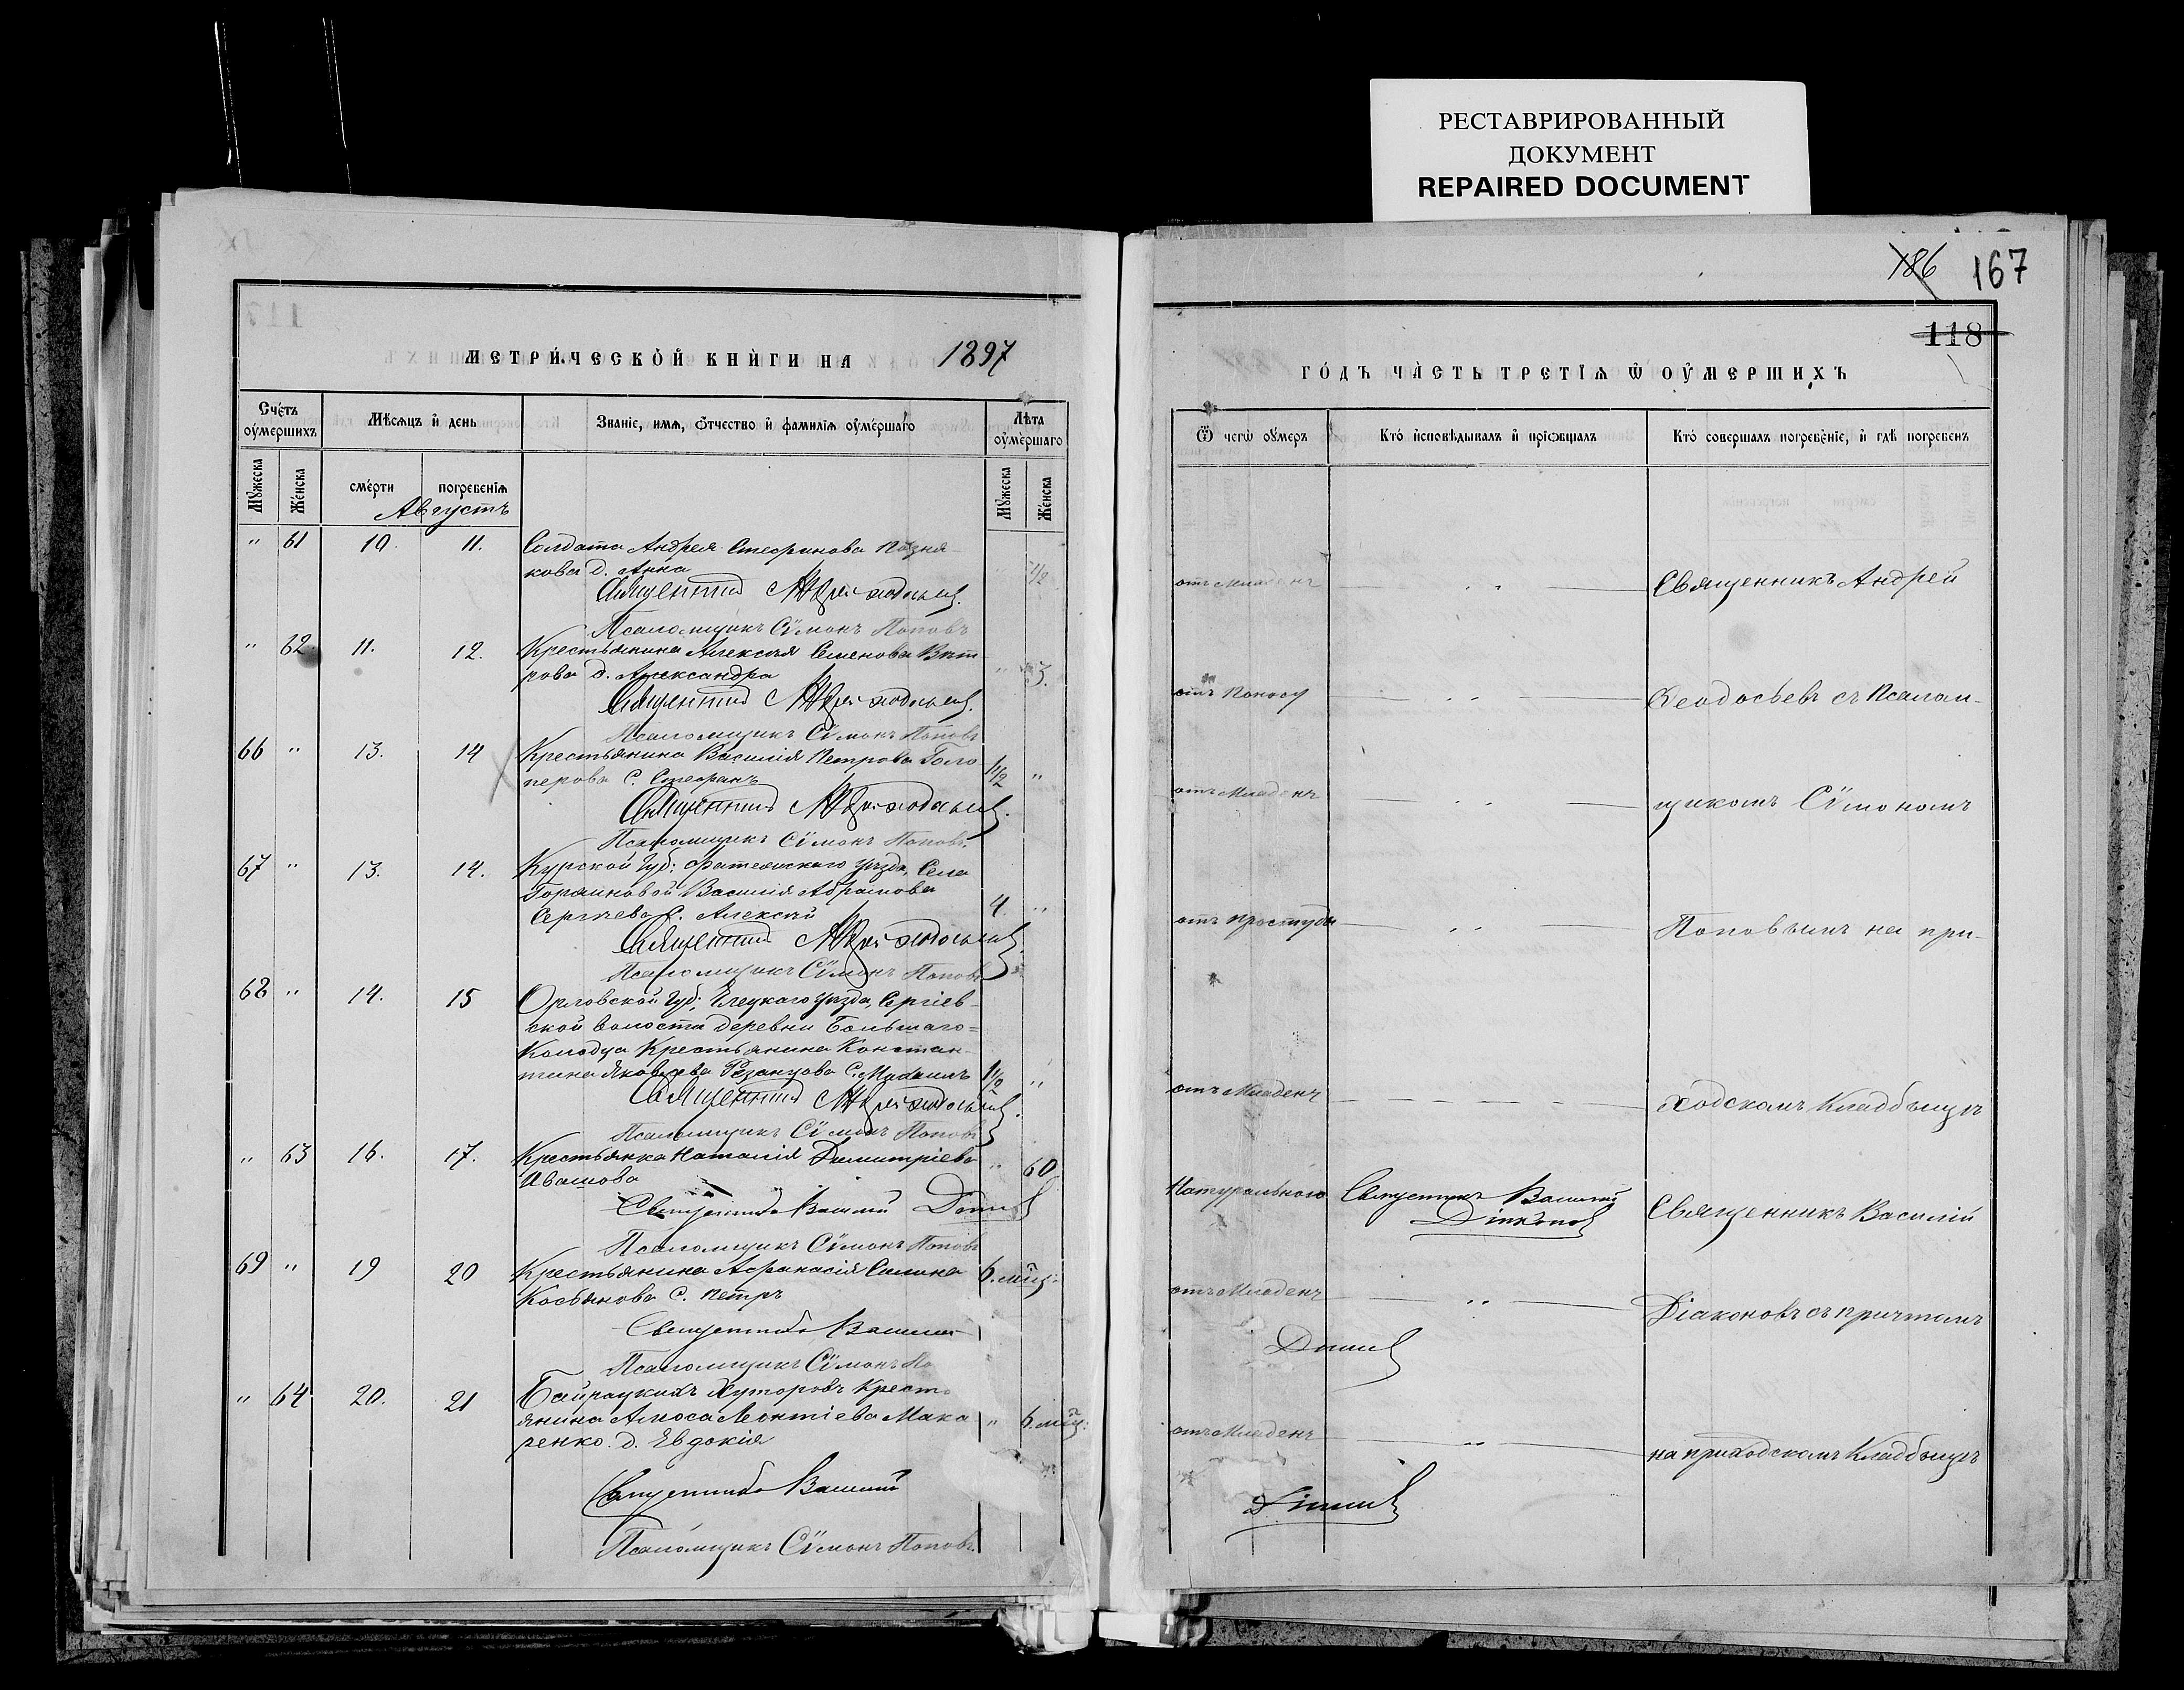 РЕСТАВРИРОВАННЫЙ
ДОКУМЕНТ
REPAIRED DOCUMENT
186 167
118
МЕТРИ́ЧЕСКОЙ КНИ́ГИ НА 1897
Сче́тъ оу҆ме́ршихъ
Мѣ́сяцъ и҆ де́нь
Зва́нїе, и҆́мѧ, ѻ҆́тчество и҆ фами́лїѧ оу҆ме́ршагѡ
Лѣ́та оу҆ме́ршаго
Мꙋ́жеска
Же́нска
сме́рти
погребе́нїѧ
Мꙋ́жеска
Же́нска
Августъ
" 61 10. 11. Солдата Андрея Стефанова Позня-
кова д. Анна 1/2
Священникъ Андрей Ѳеодосьевъ.
Псаломщикъ Сѵмонъ Поповъ
" 62 11. 12. Крестьянина Алексѣя Семенова
рова д. Александра " 3.
Священникъ Андрей Ѳеодосьевъ.
Псаломщикъ Сѵмонъ Поповъ
66 " 13. 14 Крестьянина Василія Петрова Голо
перова С. Стефанъ 1 1/2 "
Священникъ Андрей Ѳеодосьевъ.
Псаломщикъ Сѵмонъ Поповъ.
67 " 13. 14. Курской Губ: Фатежскаго уѣзда, Села
Василія Абрамова
Сергѣева С. Алексѣй 4. "
Священникъ Андрей Ѳеодосьевъ
Псаломщикъ Сѵмонъ Поповъ
68 " 14. 15 Орловской Губ; Елецкаго уѣзда, Сергіев-
ской волости деревни Большаго=
Колодца Крестьянина Констан-
тина Яковлева Рѣзанцова С. Михаилъ 1 1/2 "
Священникъ Андрей Ѳеодосьевъ.
Псаломщикъ Сѵмонъ Поповъ
" 63 16. 17. Крестьянка Наталія Димитріева
Ивашова " 60
Священникъ Василій Діаконовъ
Псаломщикъ Сѵмонъ Поповъ
69 " 19 20 Крестьянина Афанасія Симона
Косьянова С. Петръ 6. мѣц:
Священникъ Василій
Псаломщикъ Сѵмонъ По
" 64 20. 21 Байрацкихъ Хуторовъ Крестъ
янина Амоса Леонтіева Мака
ренко. д. Евдокія " 6. мѣц:
Священникъ Василій
Псаломщикъ Сѵмонъ Поповъ.
ГО́ДЪ ЧА́СТЬ ТРЕ́ТЇѦ Ѡ҆ ОУ҆МЕ́РШИХЪ
Ѿ чегѡ̀ оу҆́меръ
Кто̀ и҆сповѣ́дывалъ и҆ прїѡбща́лъ
Кто̀ соверша́лъ погребе́нїе, и҆ гдѣ̀ погребе́нъ
отъ Младенч " Священникъ Андрей
отъ Поносу " Ѳеодосьевъ съ Псалом-
отъ Младенч " щикомъ Сѵмономъ
отъ простуды " Поповымъ на при-
отъ Младенч ходскомъ Кладбищѣ
Натурального Священникъ Василій
Діаконовъ
Священникъ Василій
отъ Младенч " Діаконовъ съ причтомъ
Діаконовъ
отъ Младенч " на приходскомъ Кладбищѣ
Діаконовъ